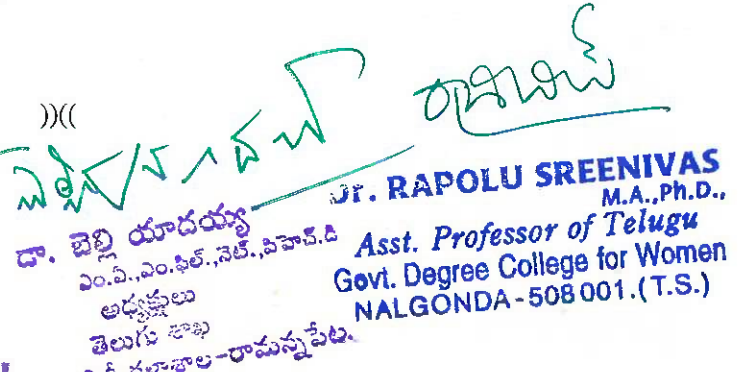 ))((
డా. బెల్లి యాదయ్య
ఎం.ఏ.,ఎం.ఫిల్.,నెట్.,పిహెచ్.డి
అధ్యక్షులు
తెలుగు శాఖ
-రామన్నపేట.
Dr. RAPOLU SREENIVAS
M.A.,Ph.D.,
Asst. Professor of Telugu
Govt. Degree College for Women
NALGONDA-508 001.(T.S.)